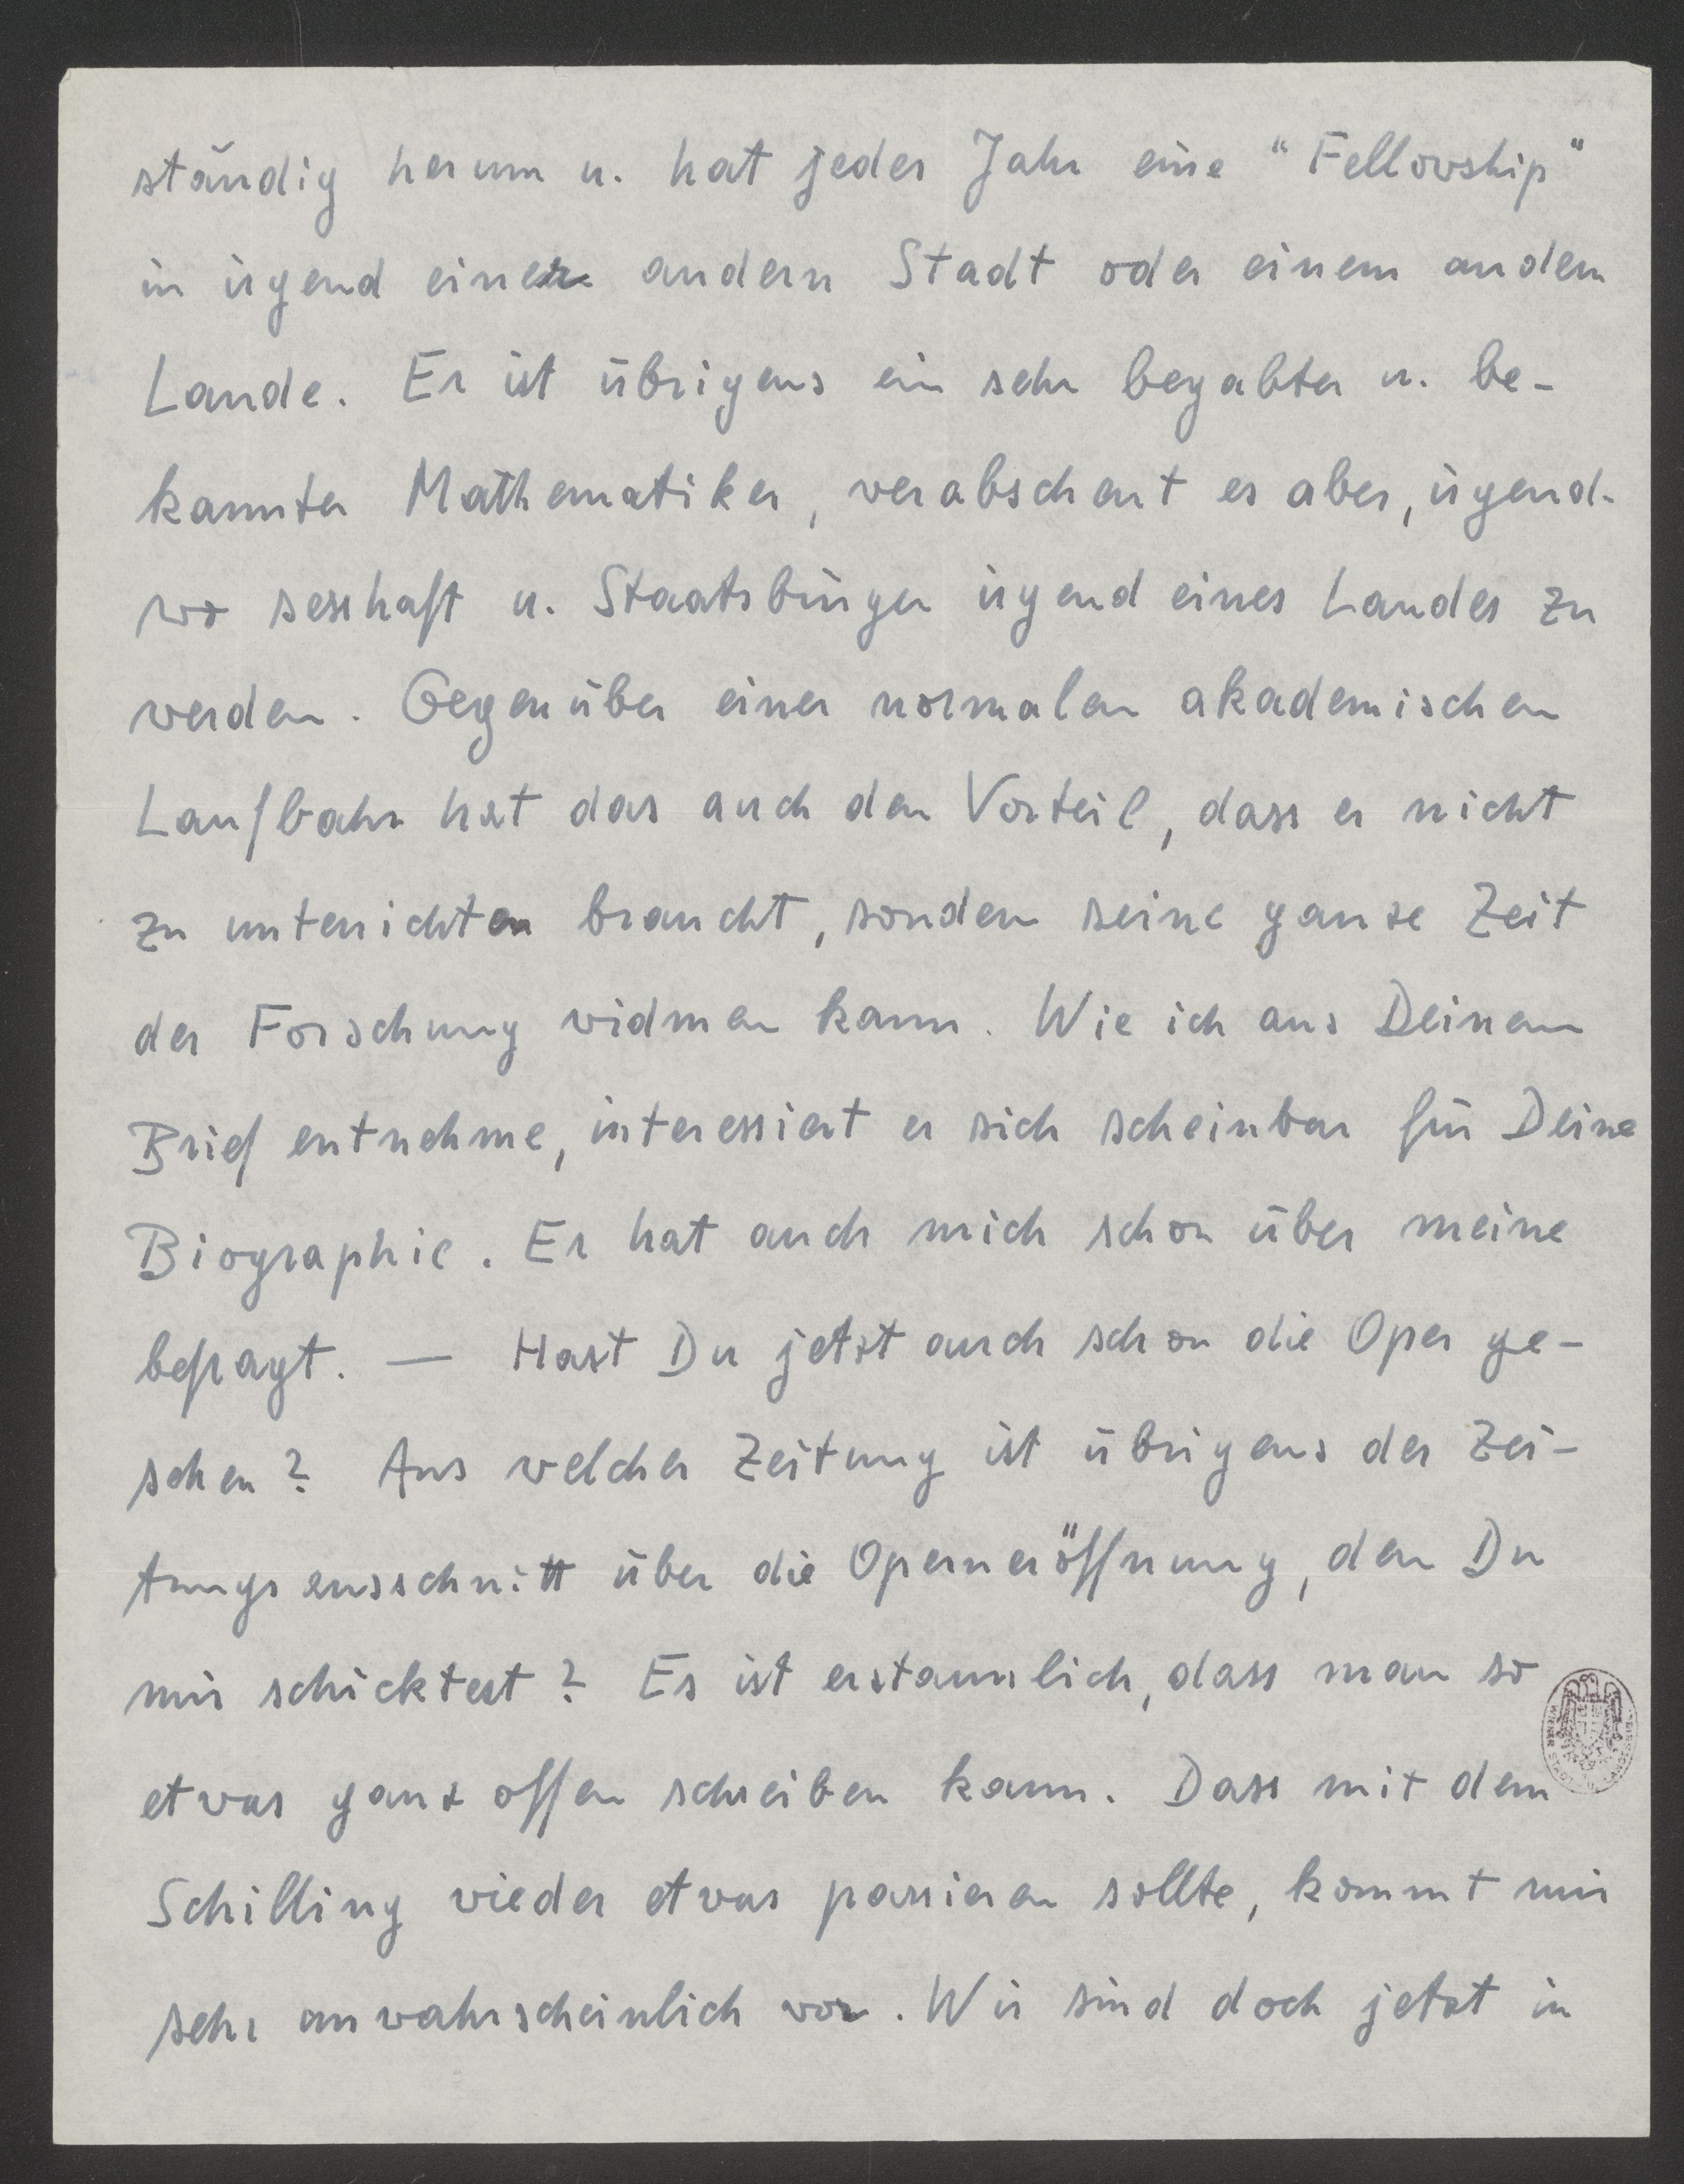 ständig herum u. hat jedes Jahr eine "Fellowship"
in irgend einer andern Stadt oder einem andern
Lande. Er ist übrigens ein sehr begabter u. be-
kannter Mathematiker, verabscheut es aber, irgend-
wo sesshaft u. Staatsbürger irgend eines Landes zu
werden. Gegenüber einer normalen akademischen
Laufbahn hat das auch den Vorteil, dass er nicht
zu unterrichten braucht, sondern seine ganze Zeit
der Forschung widmen kann. Wie ich aus Deinem
Brief entnehme, interessiert er sich scheinbar für Deine
Biographie. Er hat auch mich schon über meine
befragt. — Hast Du jetzt auch schon die Oper ge-
sehen? Aus welcher Zeitung ist übrigens der Zei-
tungsausschnitt über die Operneröffnung, den Du
mir schicktest? Es ist erstaunlich, dass man so
etwas ganz offen schreiben kann. Dass mit dem
Schilling wieder etwas passieren sollte, kommt mir
sehr unwahrscheinlich vor. Wir sind doch jetzt in
WIENER